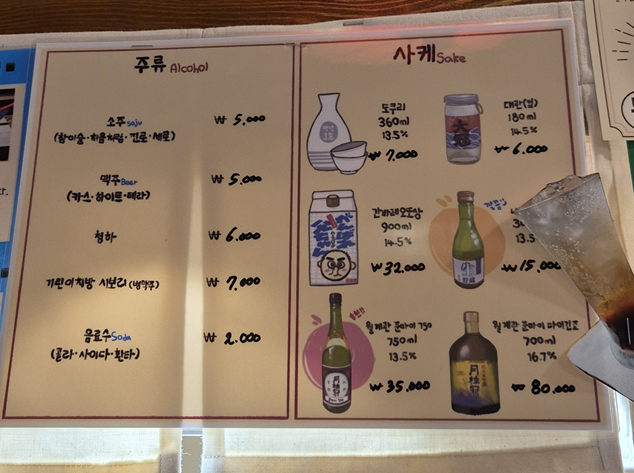 주류 Alcohol
소주 soju ₩ 5.000
(참이슬·처음처럼·진로·새로)
맥주 Beer ₩ 5.000
(카스·하이트·테라)
청하 ₩ 6.000
기린이치방 시보리 (병맥주) ₩ 7.000
음료수 Soda ₩ 2.000
(콜라·사이다·환타)
사케 Sake
도쿠리
360ml
13.5%
₩ 7.000
대관(컵)
180ml
14.5%
₩ 6.000
간바레오또상
900ml
14.5%
₩ 32.000
13.5
₩ 15.000
월계관 준마이 750
750ml
13.5%
₩ 35.000
추천!!
월계관 준마이 다이긴죠
700ml
16.7%
₩ 80.000
月桂冠